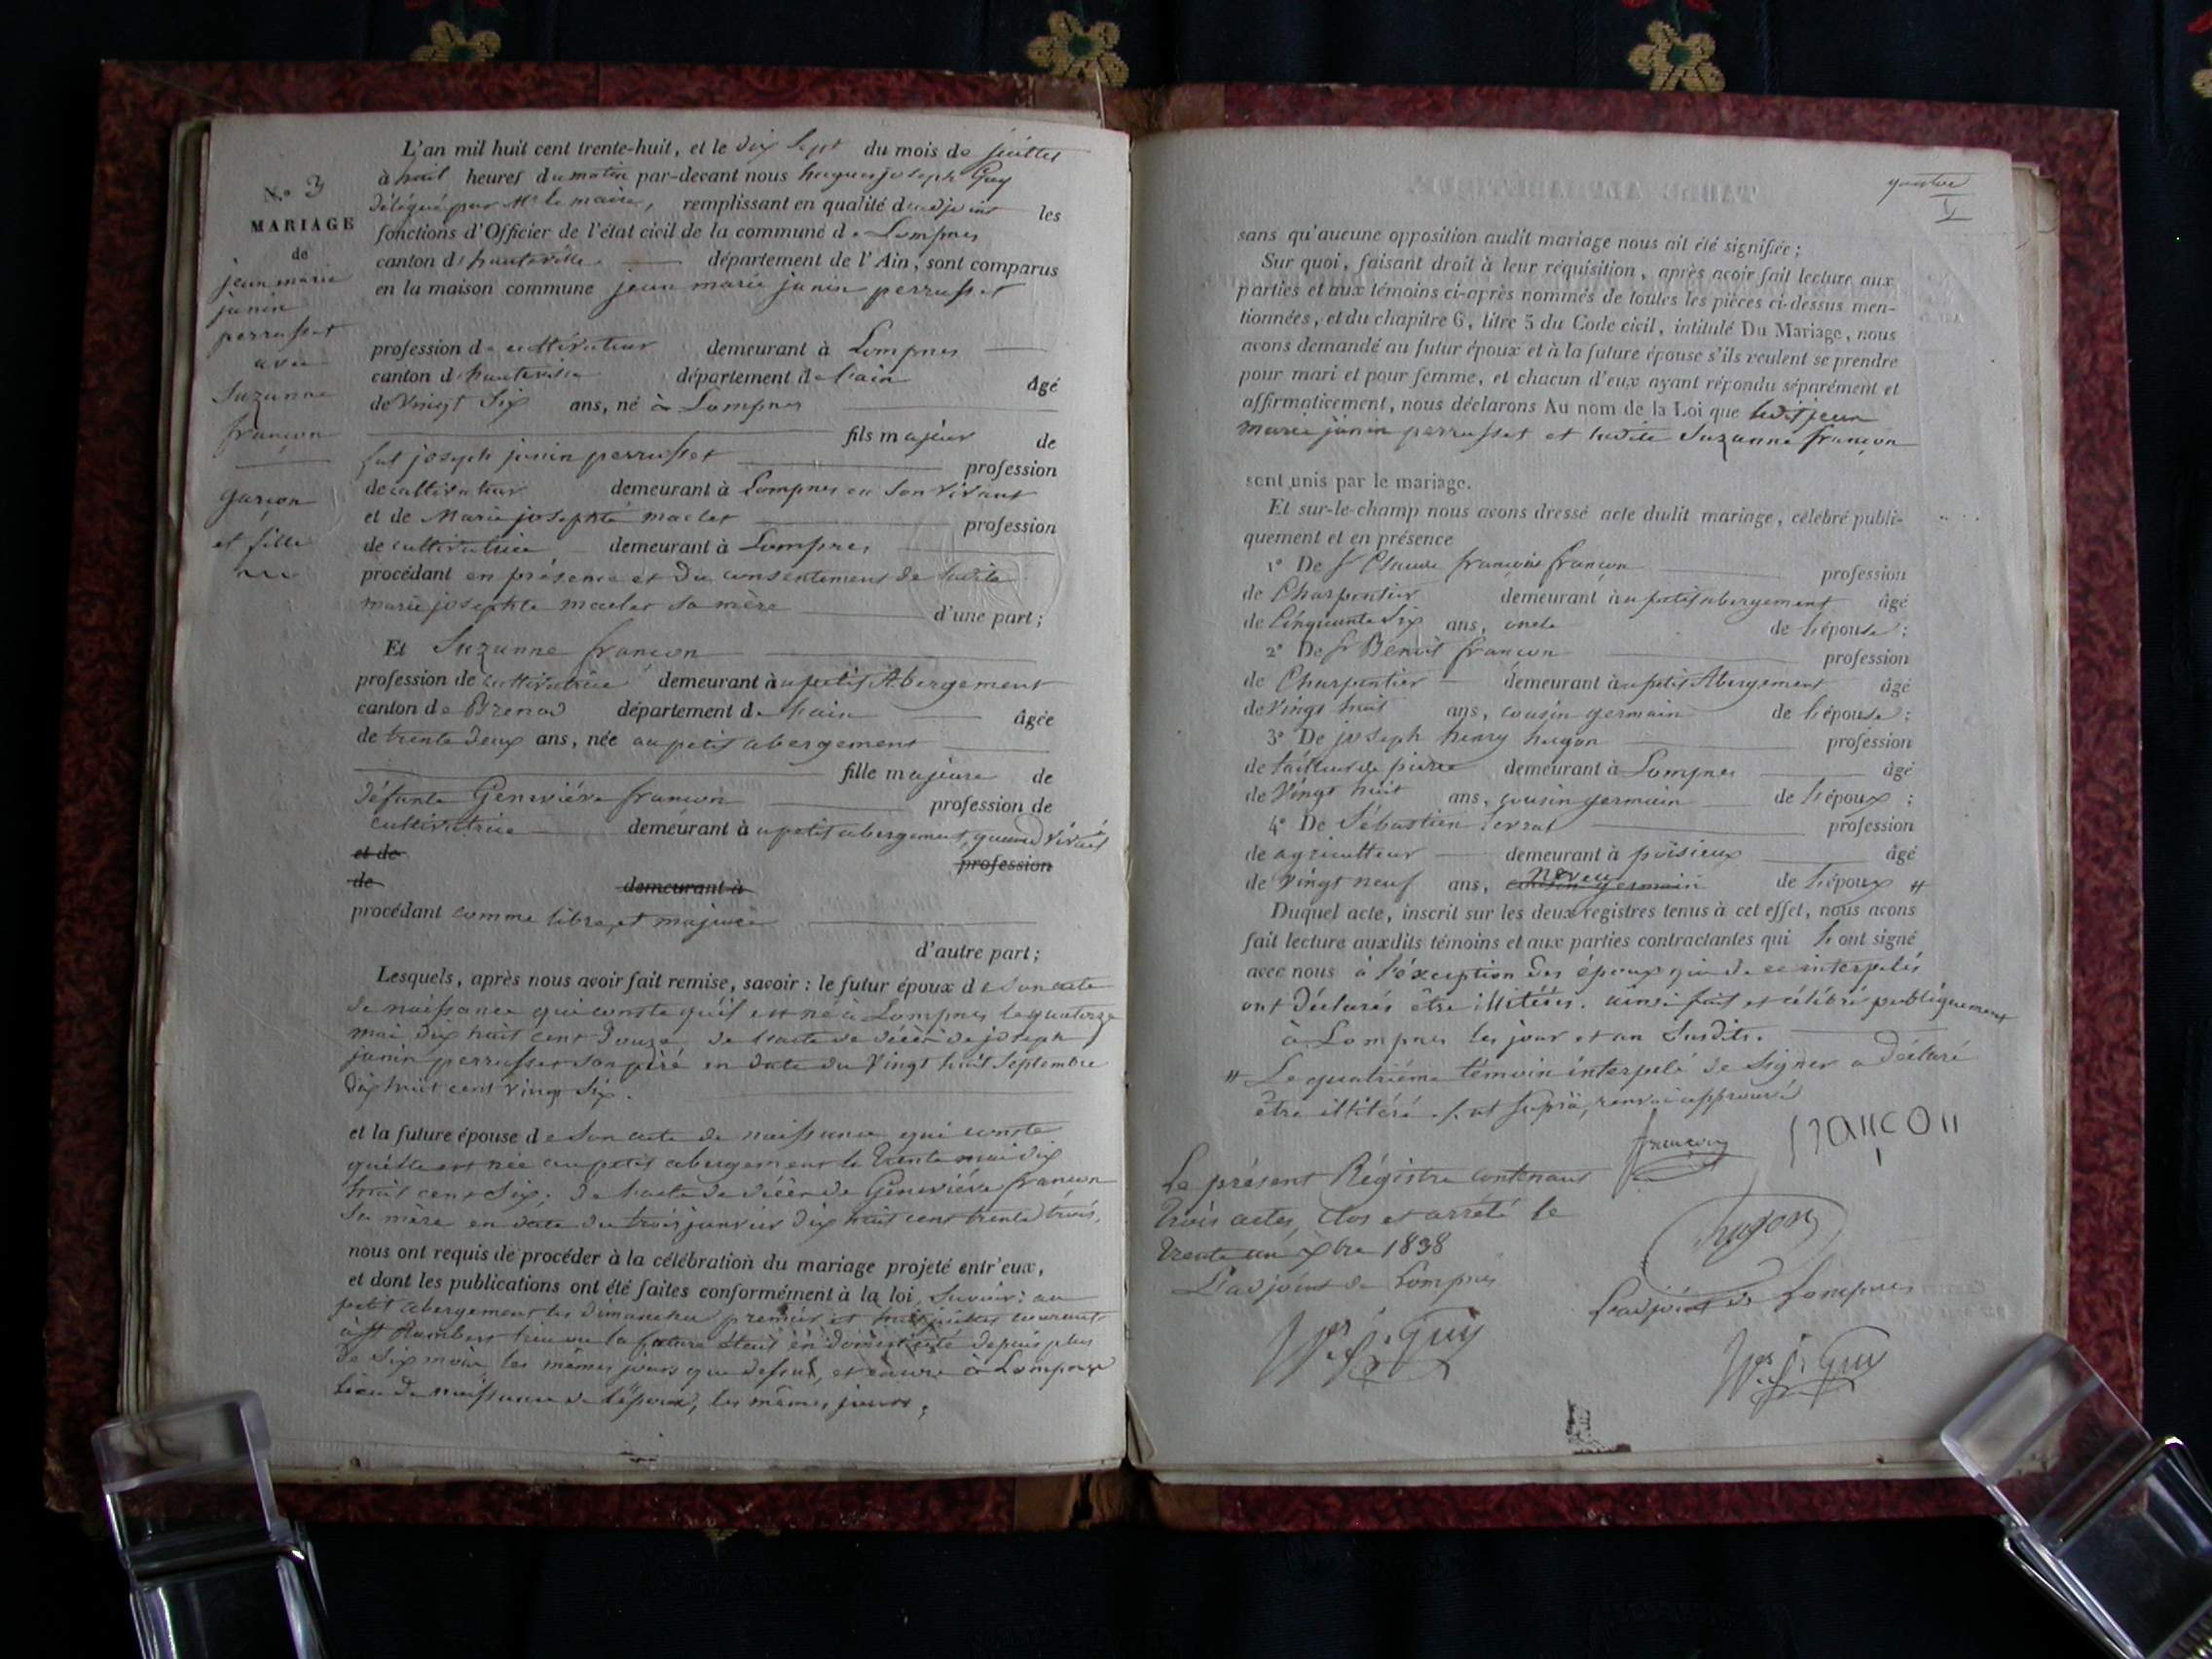 N.º 3
MARIAGE
de
jean marie
janin
perrusset
avec
Suzanne
françon
garçon
et fille
L'an mil huit cent trente-huit, et le dix Sept du mois de juillet
à huit heures du matin par-devant nous hugues joseph Guy
délégué par Mr le maire, remplissant en qualité d'adjoint les
fonctions d'Officier de l'état civil de la commune de Lompnes
canton d'hauteville département de l'Ain, sont comparus
en la maison commune jean marie janin perrusset
profession de cultivateur demeurant à Lompnes
canton d'hauteville département de l'ain âgé
de Vingt Six ans, né à Lompnes
fils majeur de
fut joseph janin perrusset profession
de cultivateur demeurant à Lompnes en Son vivant
et de Marie josephte maclet profession
de cultivatrice demeurant à Lompnes
procédant en présence et du consentement de ladite
marie josephte maclet Sa mère d'une part;
Et Suzanne françon
profession de cultivatrice demeurant au petit Abergement
canton de Brenod département de l'ain âgée
de trente deux ans, née au petit abergement
fille majeure de
défunte Geneviéve françon profession de
cultivatrice demeurant au petit abergement, quand vivait
et de profession
de demeurant à
procédant comme libre, et majeure
d'autre part;
Lesquels, après nous avoir fait remise, savoir: le futur époux de Son acte
de naissance qui conste qu'il est né à Lompnes le quatorze
mai dix huit cent douze, de l'acte de décès de joseph
janin perrusset Son péré en date du Vingt huit Septembre
dix huit cent vingt Six.
et la future épouse de Son acte de naissance qui conste
qu'elle est née au petit abergement le trente mai dix
huit cent Six. de l'acte de décès de Geneviéve françon
Sa mère en date du trois janvier dix huit cent trente trois,
nous ont requis de procéder à la célébration du mariage projeté entr'eux,
et dont les publications ont été faites conformément à la loi, Savoir: au
petit abergement les dimanches premier et huit juillet courant
à St Rambert lieu ou la future était en domesticité depuis plus
de Six mois, les mêmes jours que dessus, et encore à Lompnes
lieu de naissance de l'époux, les mêmes jours;
sans qu'aucune opposition audit mariage nous ait été signifiée;
Sur quoi, faisant droit à leur réquisition, après avoir fait lecture aux
parties et aux témoins ci-après nommés de toutes les pièces ci-dessus men-
tionnées, et du chapitre 6, titre 5 du Code civil, intitulé Du Mariage, nous
avons demandé au futur époux et à la future épouse s'ils veulent se prendre
pour mari et pour femme, et chacun d'eux ayant répondu séparément et
affirmativement, nous déclarons Au nom de la Loi que ledit jean
marie janin perrusset et ladite Suzanne françon
sont unis par le mariage.
Et sur-le-champ nous avons dressé acte dudit mariage, célébré publi-
quement et en présence
1º De Sr Claude françois françon profession
de Charpentier demeurant au petit abergement âgé
de Cinquante Six ans, oncle de l'épouse;
2º De Sr Benoit françon profession
de Charpentier demeurant au petit Abergement âgé
de Vingt huit ans, cousin germain de l'épouse;
3º De joseph henry hugon profession
de tailleur de pierre demeurant à Lompnes âgé
de Vingt huit ans, cousin germain de l'époux;
4º De Sébastien Serrat profession
de agriculteur demeurant à poisieux âgé
de Vingt neuf ans, cousin germain neveu de l'époux #
Duquel acte, inscrit sur les deux registres tenus à cet effet, nous avons
fait lecture auxdits témoins et aux parties contractantes qui l'ont signé
avec nous à l'éxception des époux qui de ce interpelés
ont déclarés être illitérés. ainsi fait et célébré publiquement
à Lompnes les jour et an Susdits.
# Le quatriéme témoin interpelé de Signer a déclaré
être illitéré. ut Suprà, renvoi approuvé
françon françon
Le présent Régistre contenant
trois actes, Clos et arrêté le
trente un xbre 1838
L'adjoint de Lompnes
hugon
L'adjoint de Lompnes
Hes Jh Guy
Hes Jh Guy